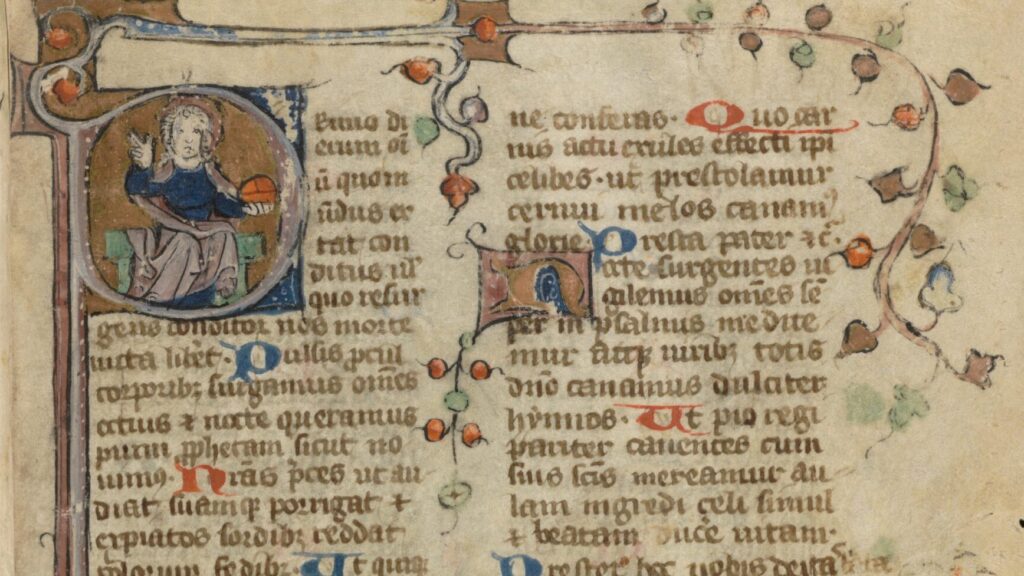 Primo di
erum oī
ū quo m
ūdus ex
tat con
ditus ul̄
quo resur
gens conditor nos morte
uicta lib̄et· Pulsis ꝓcul
torporibꝫ surgamus om̄es
ocius ⁊ nocte queramus
pium ꝓphetam sicut no
uimꝰ· Nrās p̄ces ut au
diat suamqꝫ porrigat ⁊
expiatos sordibꝫ reddat
polorum sedibꝫ· Ut quiqꝫ
ne conferas· Quo car
nis actu exules effecti ipī
celibes· ut prestolamur
cernui melos canamꝰ
glorie· Presta pater ⁊c̄·
Nocte surgentes ui
gilemus om̄es sē
per in psalmis medite
mur atqꝫ uiribꝫ totis
dn̄o canamus dulciter
hymnos· Ut pio regi
pariter canentes cum
suis sc̄is mereamur au
lam ingredi celi simul
⁊ beatam ducere uitam·
Prestet hoc nobis deitas